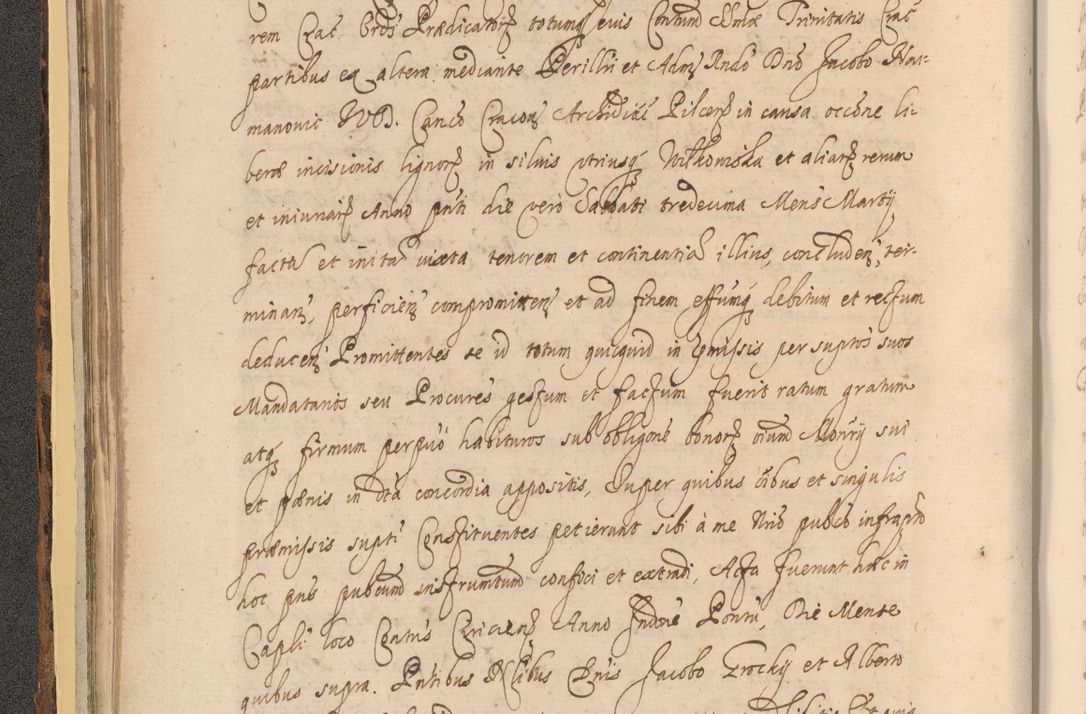 rem Crac Ordis Prædicatorz totumq eius Contum SSmæ Trinitatis Crac
partibus ex altera mediante Perillri et Admz Rndo Dno Jacobo Nat-
manovic JVD. Canco Cracou Archidiac Pilcen in causa occone li-
beræ incisionis lignorz in siluis vtriusq Wilkowiska et aliarz rerum
et iniuriarz Anno pnti die vero Sabbati tredecima Mens Martij
facta et inita iuxta tenorem et continentia illius, concluden, ter-
minan, perficien compromitten et ad finem effumq debitum et rectum
deducen Promittentes se id totum quicquid in pmissis per suptos suos
Mandatarios seu Procures gestum et factum fuerit ratum gratum
atq firmum perpuo habituros sub obligone bonorz oium Monrij sui
et pænis in dta concordia appositis, Super quibus oibus et singulis
præmissis supti Constituentes petierunt sibi à me Nrio pubco infrapto
hoc pns pubcum instrumtum confici et extradi, Acta fuerunt hæc in
Capli loco Contus Czricien Anno Indne Pontu, Die Mense
quibus supra. Pntibus Rlibus Dnis Jacobo Trockij et Alberto